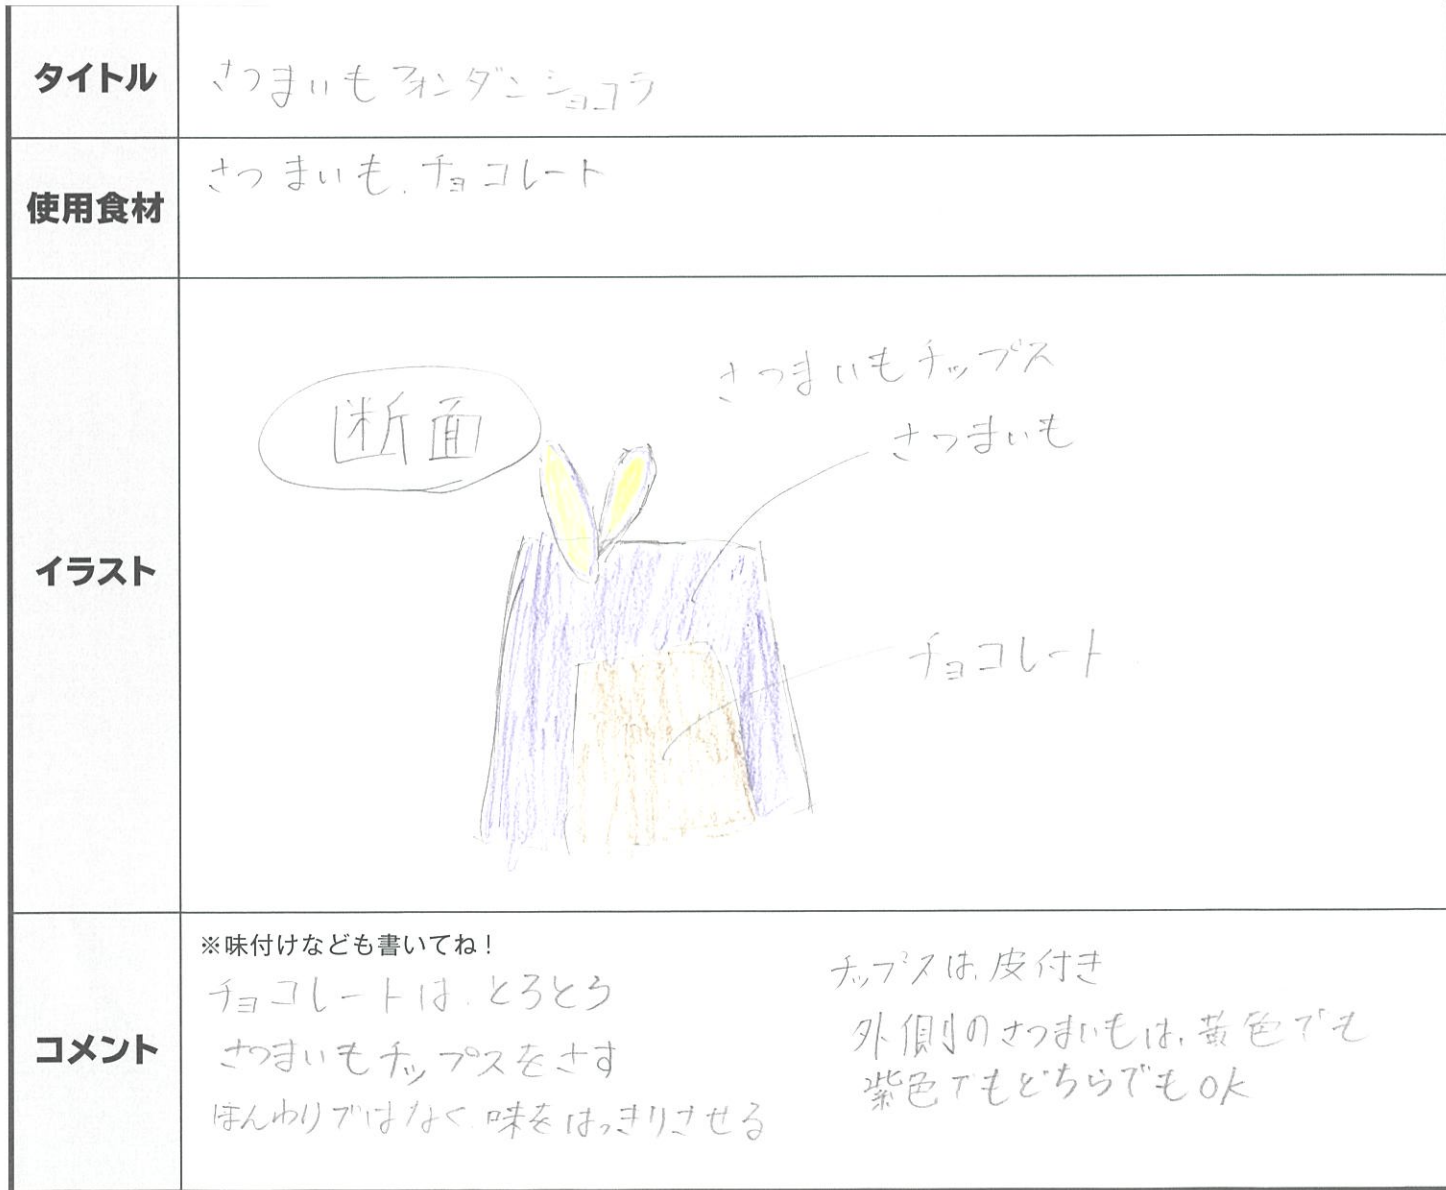 タイトル
さつまいもフォンダンショコラ
使用食材
さつまいも、チョコレート
イラスト
断面
さつまいもチップス
さつまいも
チョコレート
コメント
※味付けなども書いてね！
チョコレートは、とろとろ
さつまいもチップスをさす
ほんわりではなく、味をはっきりさせる
チップスは、皮付き
外側のさつまいもは、黄色でも
紫色でもどちらでもOK